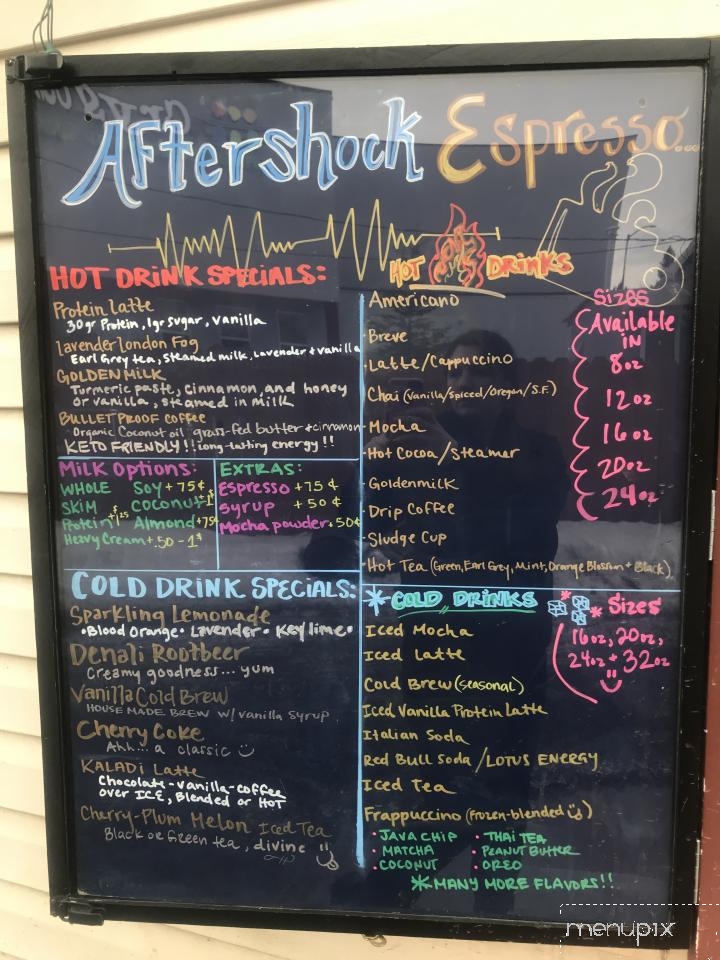 Aftershock Espresso...
HOT DRINK SPECIALS:
Protein Latte
30gr Protein, 1gr sugar, vanilla
lavender london Fog
Earl Grey tea, steamed milk, Lavender + vanilla
GOLDEN MILK
Turmeric paste, cinnamon, and honey
or vanilla, steamed in milk
BULLET PROOF coffee
Organic Coconut oil grass-fed butter + cinnamon
KETO FRIENDLY!! long-lasting energy!!
Milk Options:
WHOLE Soy + 75¢
SKIM Coconut + 1$
Protein + $1.25 Almond + 75¢
Heavy Cream + .50 - 1$
EXTRAS:
Espresso + 75¢
Syrup + 50¢
Mocha powder + 50¢
HOT DRINKS
Americano
Breve
Latte/Cappuccino
Chai (Vanilla/Spiced/Oregon/S.F.)
Mocha
Hot Cocoa/Steamer
Goldenmilk
Drip Coffee
Sludge Cup
Hot Tea (Green, Earl Grey, Mint, Orange Blossom + Black)
Sizes
Available
in
8oz
12oz
16oz
20oz
24oz
COLD DRINK SPECIALS:
Sparkling Lemonade
•Blood Orange• Lavender • Key lime•
Denali Rootbeer
Creamy goodness... yum
Vanilla Cold Brew
HOUSE MADE BREW W/ vanilla syrup
Cherry Coke
Ahh... a classic
KALADI Latte
Chocolate-vanilla-coffee
over ICE, Blended or HOT
Cherry-Plum Melon Iced Tea
Black or Green tea, divine
*COLD DRINKS
Iced Mocha
Iced Latte
Cold Brew (seasonal)
Iced Vanilla Protein Latte
Italian Soda
Red Bull Soda /LOTUS ENERGY
Iced Tea
Frappuccino (frozen-blended)
• JAVA CHIP • THAI TEA
• MATCHA • PEANUT BUTTER
• COCONUT • OREO
*MANY MORE FLAVORS!!
* Sizes
16oz, 20oz,
24oz + 32oz
menupix